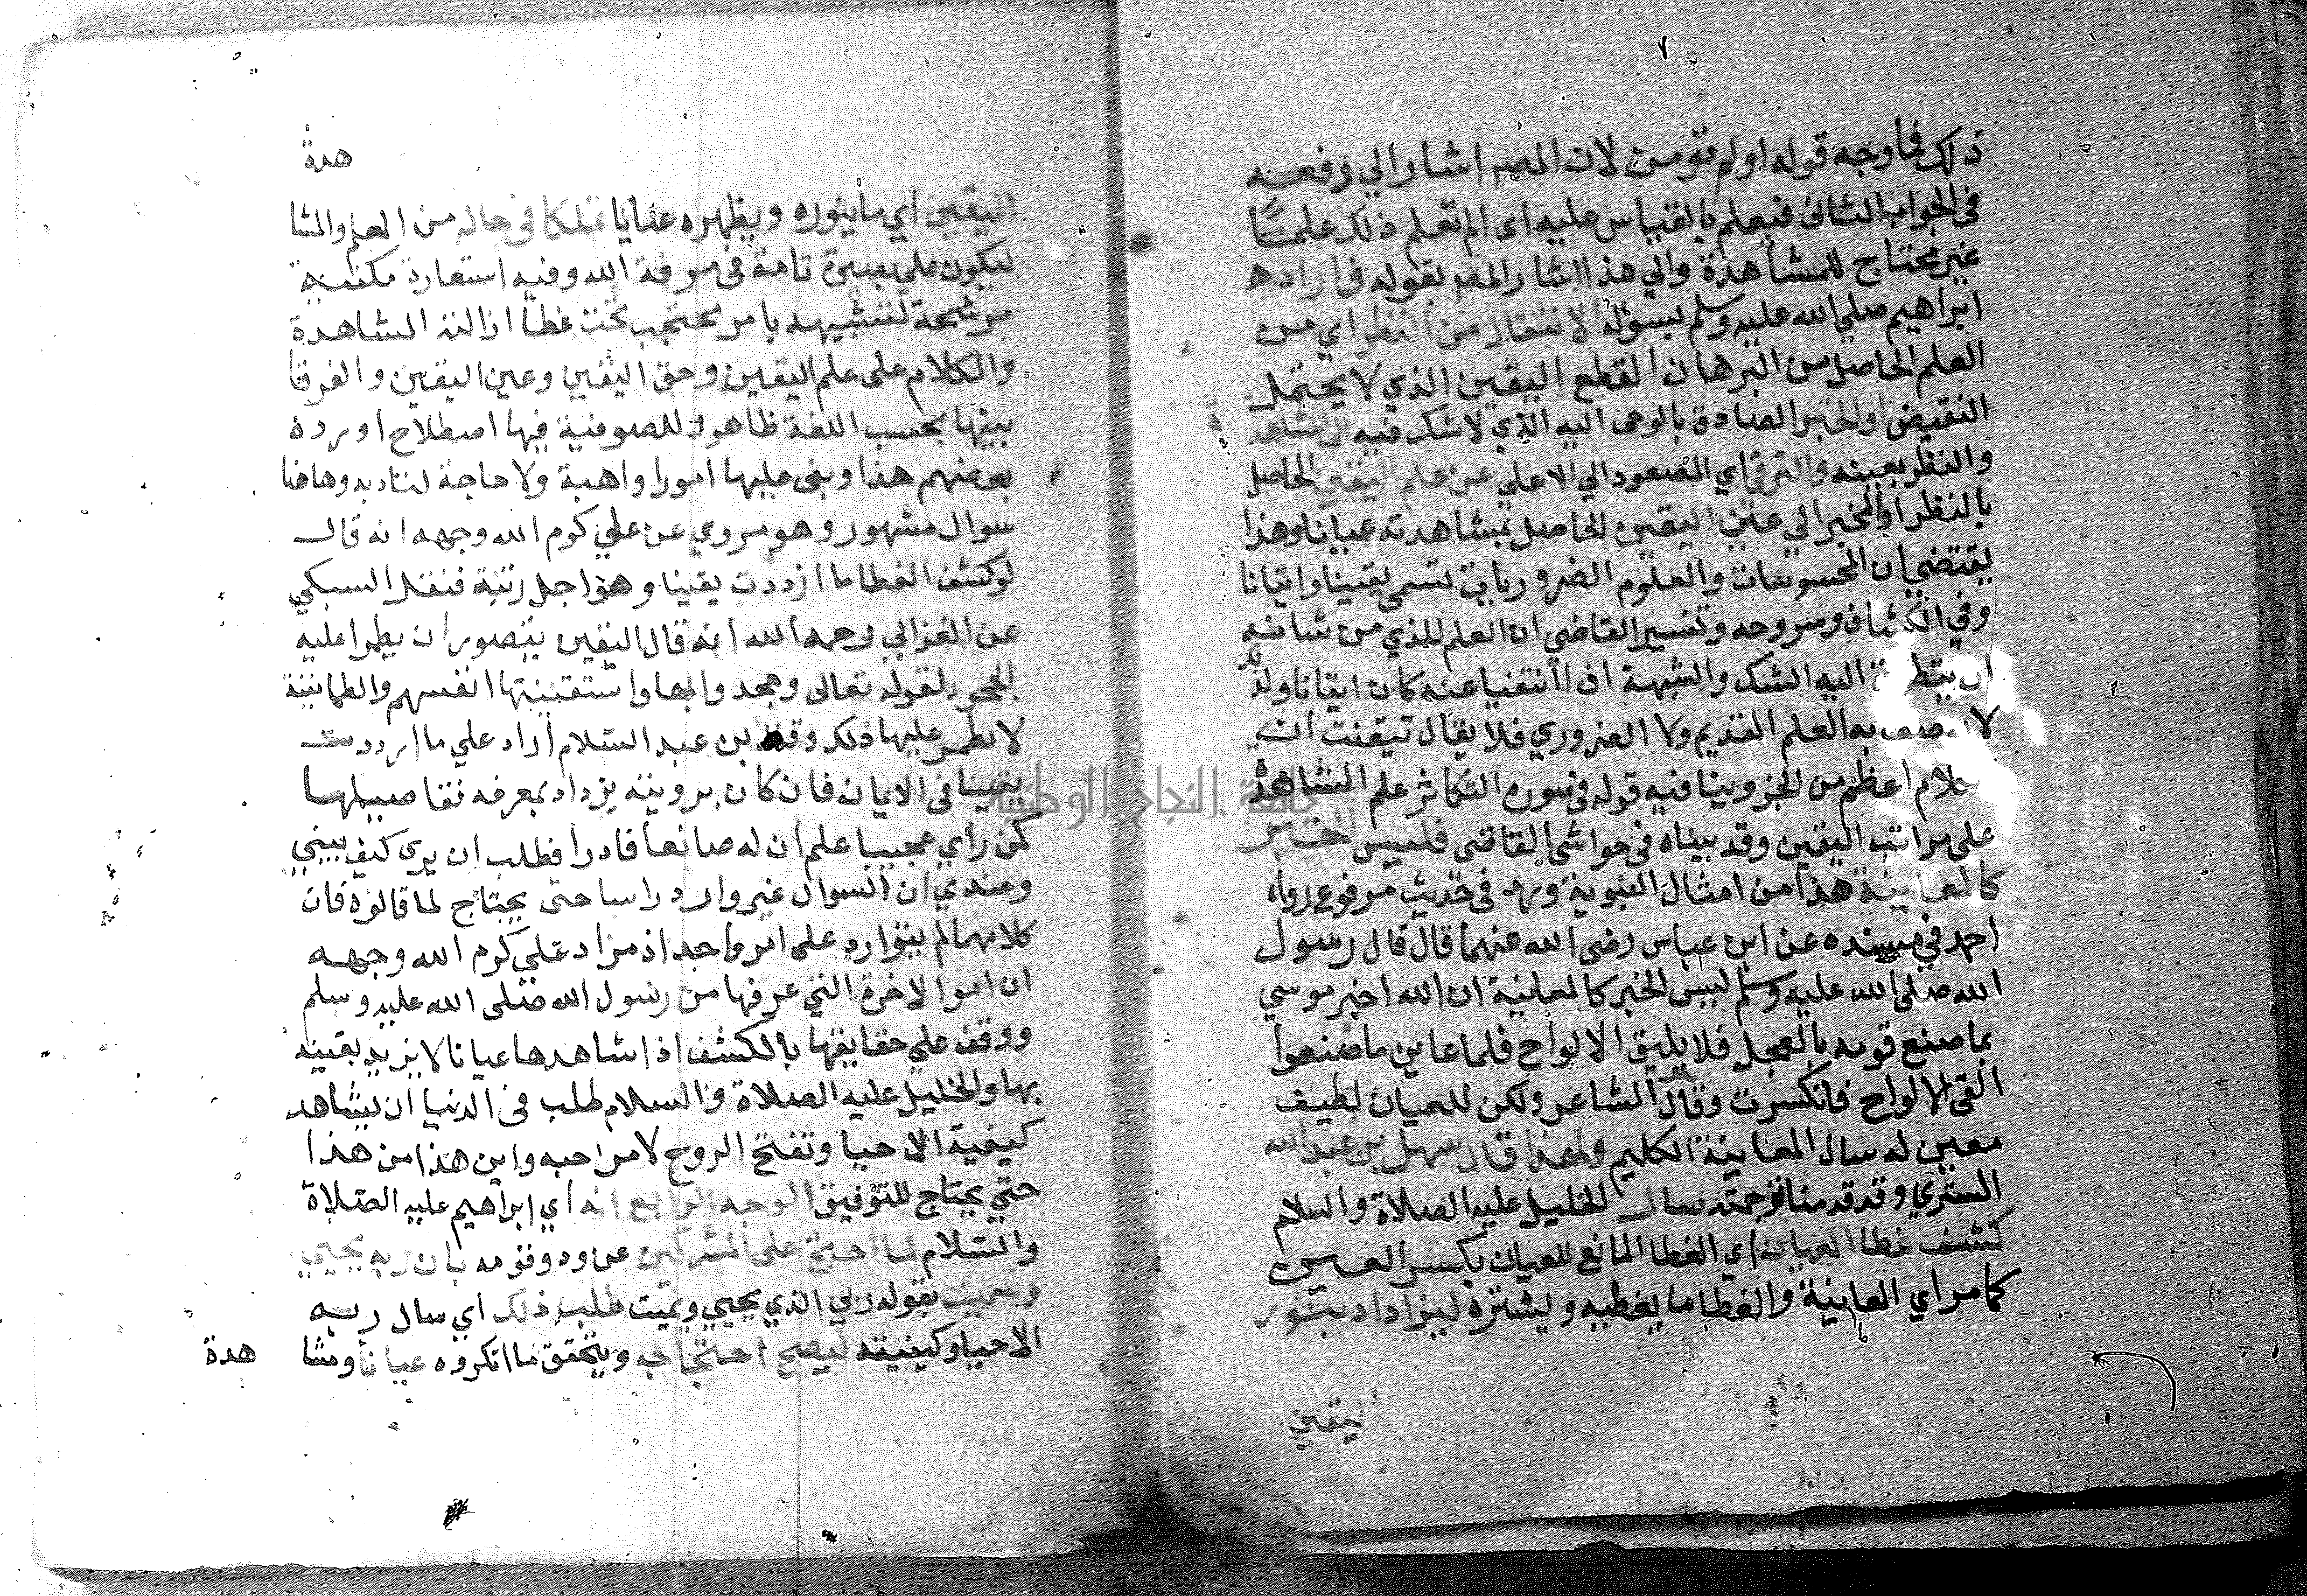 ٧
ذلك فما وجه قوله اولم تؤمن لان المصر اشار الي دفعه
فى الجواب الثانى فيعلم بالقياس عليه اى الم تعلم ذلك علما
غير محتاج للمشاهدة والي هذا اشار المصر بقوله فاراده
ابراهيم صلي الله عليه وسلم بسؤاله الانتقال من النظر اي من
العلم الحاصل من البرهان القطع اليقين الذي لا يحتمل
النقيض او الخبر الصادق بالوحى اليه الذي لا شك فيه الى المشاهدة
والنظر بعينه والترقى اي الصعود الي الاعلي عن علم اليقين الحاصل
بالنظر او الخبر الي عين اليقين الحاصل بمشاهدته عيانا وهذا
يقتضي ان المحسوسات والعلوم الضروريات تسمى يقينا وايقانا
وفي الكشاف وشروحه وتفسير القاضي ان العلم للذي من شانه
ان يتطرق اليه الشك والشبهة اذا انتفيا عنه كان ايقانا ولذلك
لا يوصف به العلم القديم ولا الضروري فلا يقال تيقنت ان
اعظم من الجزء وينافيه قوله فى سورة التكاثر علم المشاهدة
على مراتب اليقين وقد بيناه فى حواشى القاضى فليس الخبر
كالمعاينة هذا من امثال النبوية ورد فى حديث مرفوع رواه
احمد في مسنده عن ابن عباس رضى الله عنهما قال قال رسول
الله صلى الله عليه وسلم ليس الخبر كالمعاينة ان الله اخبر موسي
بما صنع قومه بالعجل فلم يلق الالواح فلما عاين ما صنعوا
القى الالواح فانكسرت وقال الشاعر ولكن للعيان لطيف
معين له سال المعاينة الكليم ولهذا قال سهل بن عبد الله
التستري وقد قدمنا ترجمته سال الخليل عليه الصلاة والسلام
كشف غطا العيان اي الغطا المانع للعيان بكسر العين
كما مر اي المعاينة والغطا ما يغطيه ويستره ليزداد بنور
اليقين
هدة
اليقين اي بما ينوره ويظهره عيانا تمكنا في حاله من العلم والمشا
ليكون علي بصيرة تامة فى معرفة الله وفيه استعارة مكنية
مرشحة لتشبيهه بامر محتجب تحت غطا ازالته المشاهدة
والكلام على علم اليقين وحق اليقين وعين اليقين والفرق
بينها بحسب اللغة ظاهر وللصوفية فيها اصطلاح اورده
بعضهم هذا وبنى عليها امورا واهية ولا حاجة لنا به وهاهنا
سوال مشهور وهو مروي عن علي كرم الله وجهه انه قال
لو كشف الغطا ما ازددت يقينا وهو اجل رتبة فنقل السبكي
عن الغزالي رحمه الله انه قال اليقين يتصور ان يطرا عليه
الجحود لقوله تعالى وجحدوا بها واستيقنتها انفسهم والطمانينة
لا يطرا عليها ذلك وقال بن عبد السلام اراد علي ما ازددت
يقينا فى الايمان فان كان برويته يزداد بمعرفه تفاصيلها
كمن راي عجيبا علم ان له صانعا قادرا فطلب ان يرى كيف يبني
وعندي ان السوال غير وارد راسا حتى يحتاج لما قالوه فان
كلامهما لم يتوارد على امر واحد اذ مراد علي كرم الله وجهه
ان امور الاخرة التي عرفها من رسول الله صلى الله عليه وسلم
ووقف علي حقايقها بالكشف اذا شاهدها عيانا لا يزيد يقينه
بها والخليل عليه الصلاة والسلام طلب فى الدنيا ان يشاهد
كيفية الاحيا ونفخ الروح لامر احبه واين هذا من هذا
حتي يحتاج للتوفيق الوجه الرابع انه اي ابراهيم عليه الصلاة
والسلام لما احتج على المشركين نمرود وقومه بان ربه يحيي
ويميت بقوله ربي الذي يحيي ويميت طلب ذلك اي سال ربه
الاحيا وكيفيته ليصح احتجاجه ويتحقق ما انكروه عيانا ومشا
هدة
جامعة النجاح الوطنية